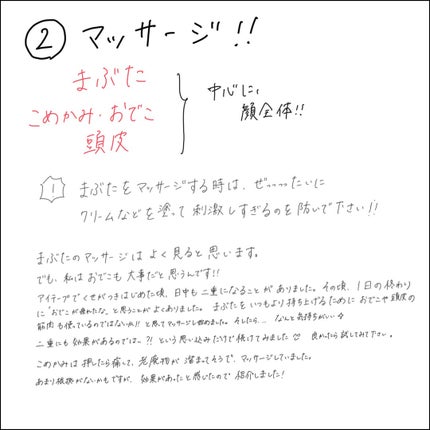 ② マッサージ!!
まぶた
こめかみ・おでこ
頭皮
中心に、
顔全体!!
! まぶたをマッサージする時は、ぜっっったいに
クリームなどを塗って刺激しすぎるのを防いで下さい!!
まぶたのマッサージはよく見ると思います。
でも、私はおでこも大事だと思うんです!!
アイテープでくせがつきはじめた頃、日中も二重になることがありました。その頃、1日の終わり
に"おでこが疲れたな"と思うことがよくありました。まぶたをいつもより持ち上げるためにおでこや頭皮の
筋肉も使っているのではないか!!と思ってマッサージし始めました。そしたら... なんと気持ちがいい☆
二重にも効果があるのでは、?!という思い込みだけで続けてみました♡ 良かったら試してみて下さい。
こめかみは押したら痛くて、老廃物が溜まってそうで、マッサージしていました。
あまり根拠がないかもですが、効果があったと感じたので紹介しました!